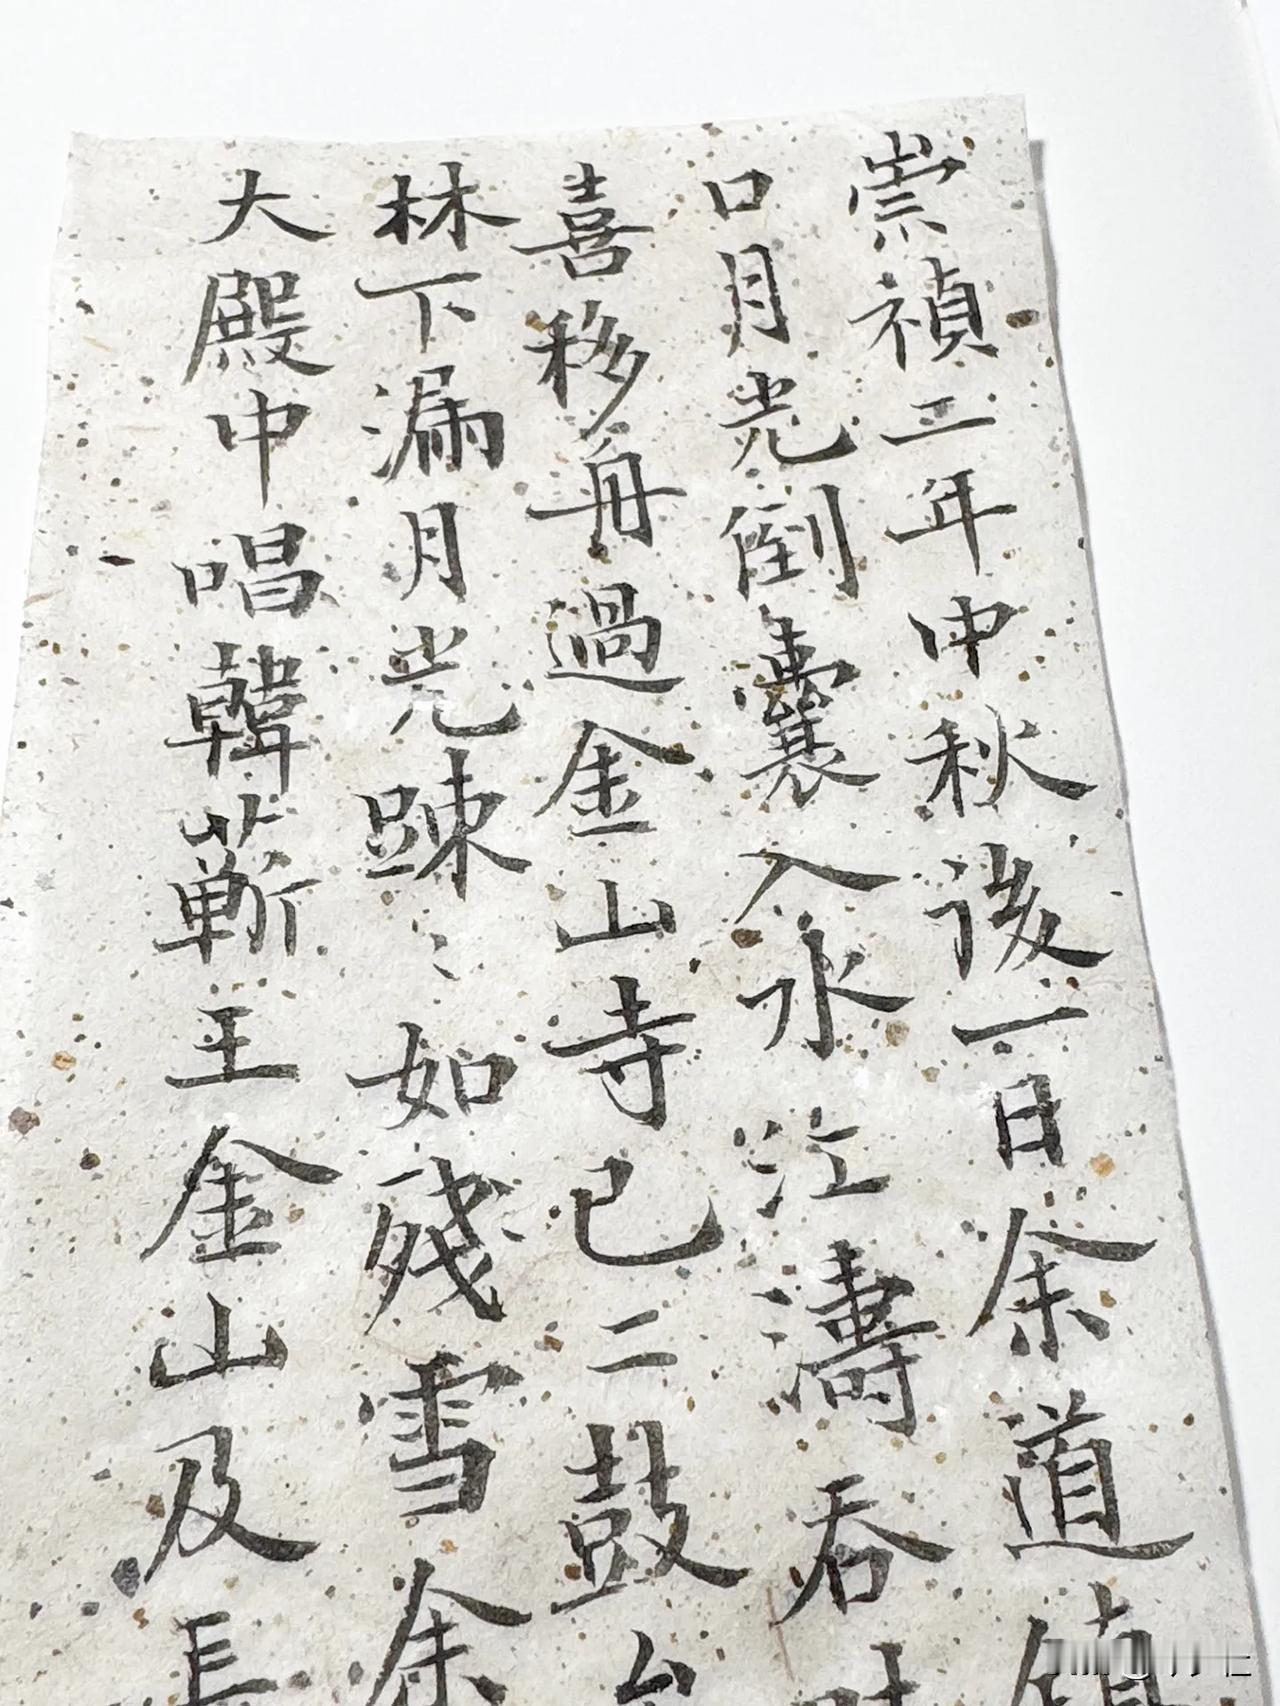 崇禎二年中秋後一日余道鎮
口月光倒囊入水江濤吞
喜移舟過金山寺已二鼓
林下漏月光踈〻如殘雪余
大殿中唱韓蘄王金山及長